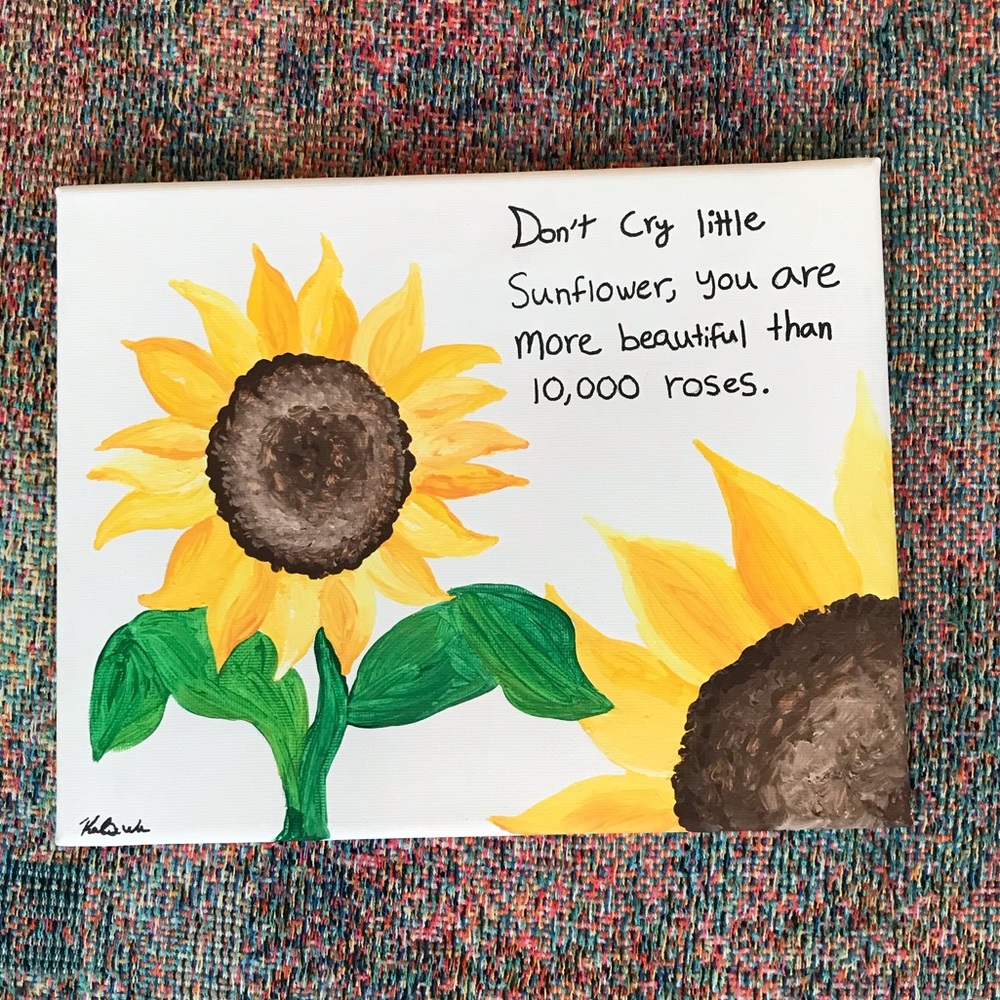 Don't Cry little
Sunflower, you are
more beautiful than
10,000 roses.